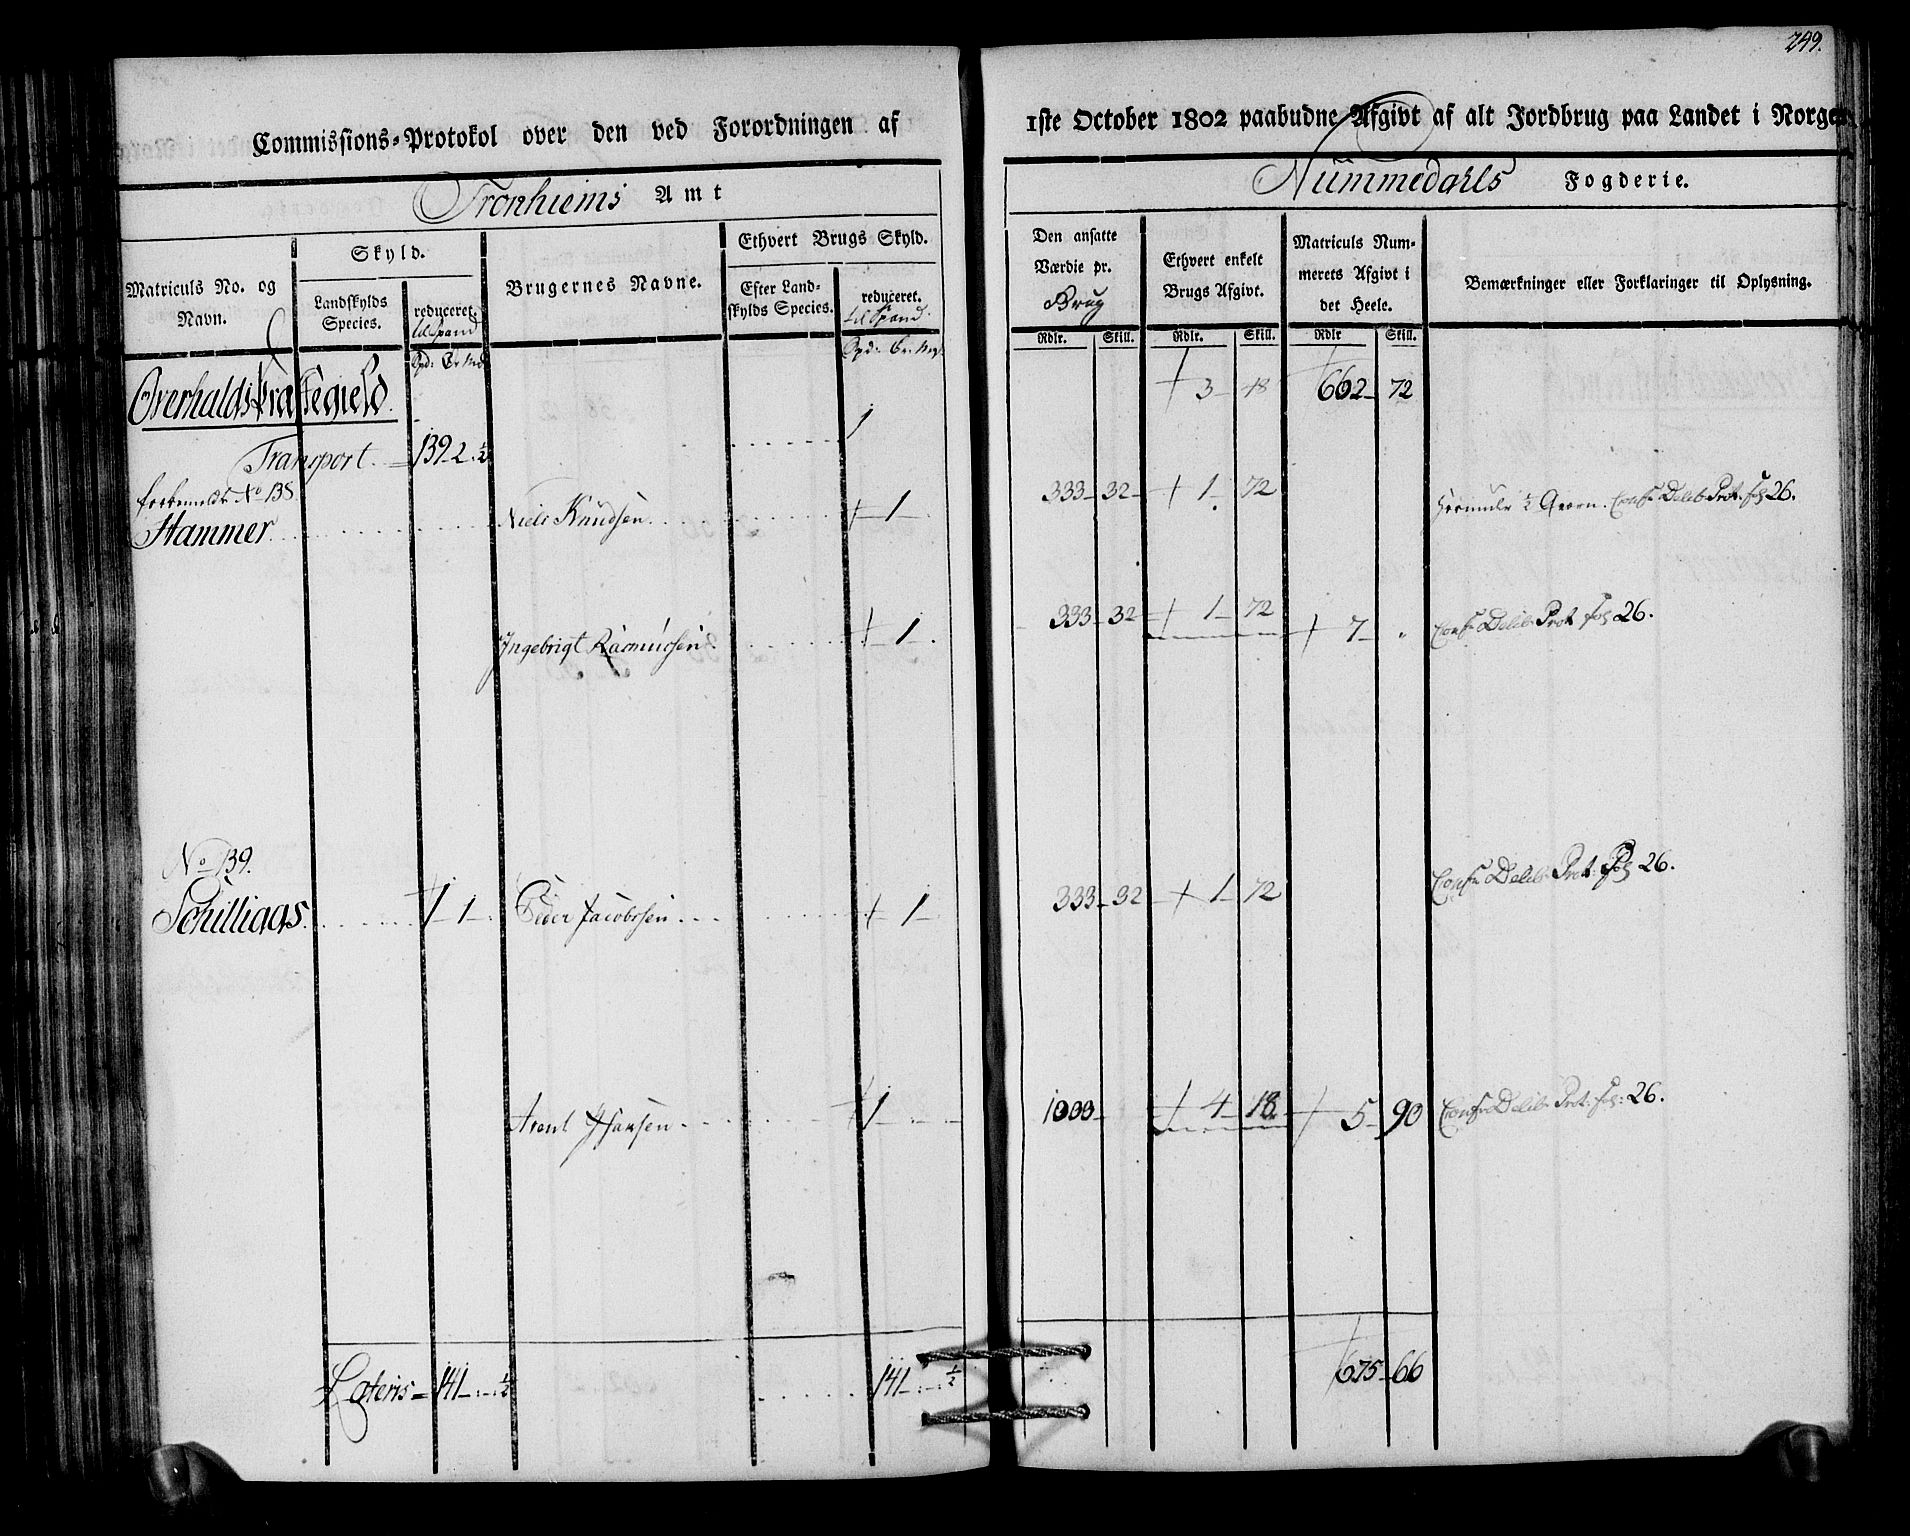 249.
Commissions-Protokol over den ved Forordningen af 1ste October 1802 paabudne Afgivt af alt Jordbrug paa Landet i Norge.
Tronhiems Amt
Nummedahls Fogderie.
Matriculs No. og Navn.
Skyld.
Landskylds Species.
reduceret. til Spand
Brugernes Navne.
Ethvert Brugs Skyld.
Efter Landskylds Species.
reduceret. til Spand.
Den ansatte Værdie pr. Brug
Ethvert enkelt Brugs Afgivt.
Matriculs Nummerets Afgivt i det Heele.
Bemærkninger eller Forklaringer til Oplysning.
Rdlr. Skill. Rdlr. Skill. Rdlr Skill.
Overhalds Præstegield.
1 3 48 662 72
Transport. 139 2 ½
No 138
Hammer Niels Knudsen 1 333 32 1 72 ½ Qværn. Confr Delib: Prot. fol 26.
Ingebrigt Rasmussen 1 333 32 1 72 7 " Confr Delib: Prot fol 26.
No 139.
Schilliaas 1 1 Peder Jacobsen 1 333 32 1 72 Confr Delib: Prot: fol 26.
Arent Hansen 1 1000 4 18 5 90 Confr Delib: Prot: fol: 26.
Lateris 141 ½ 141 ½ 675 66